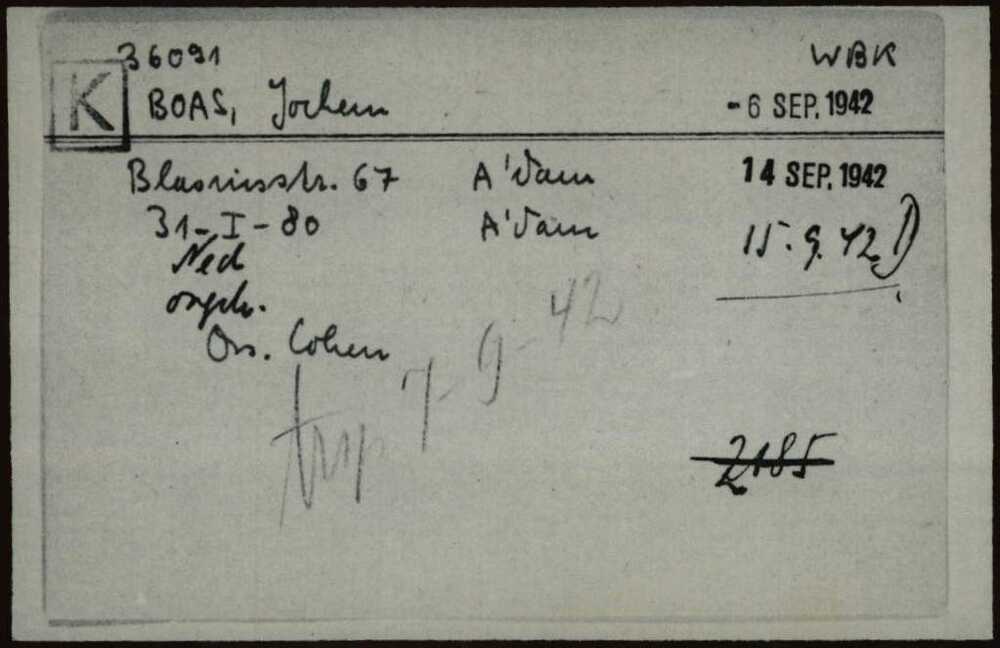 36091 WBK
K BOAS, Jochem - 6 SEP. 1942
Blasiusstr. 67 A'dam 14 SEP. 1942
31-I-80 A'dam 15.9.42
Ned
ongeh.
Ors. Cohen
trsp 7-9-42
2185